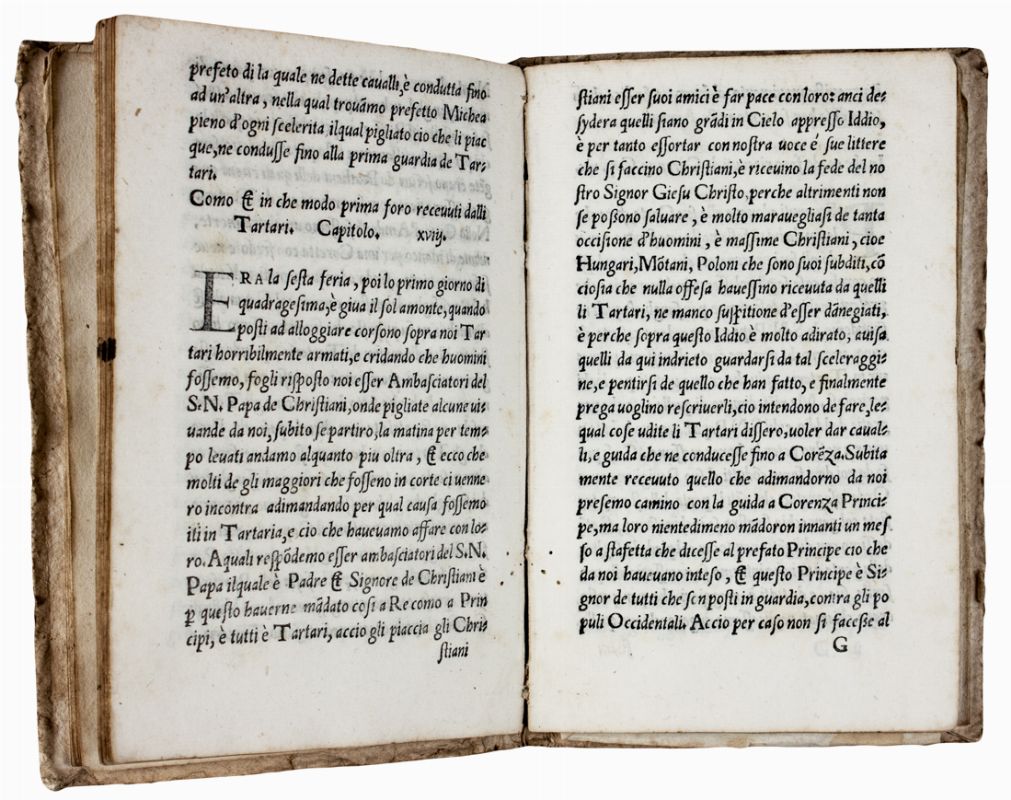 prefeto di la quale ne dette caualli, è condutta fino
ad un'altra, nella qual trouãmo prefetto Michea
pieno d'ogni scelerita, ilqual pigliato cio che li piac
que, ne condusse fino alla prima guardia de Tar-
tari.
Como & in che modo prima foro receuuti dalli
Tartari. Capitolo. xviij.
ERA la sesta feria, poi lo primo giorno di
quadragesima, è giua il sol amonte, quando
posti ad alloggiare corsono sopra noi Tar
tari horribilmente armati, e cridando che huomini
fossemo, fogli risposto noi esser Ambasciatori del
S.N. Papa de Christiani, onde pigliate alcune ui-
uande da noi, subito se partiro, la matina per tem-
po leuati andamo alquanto piu oltra, & ecco che
molti de gli maggiori che fosseno in corte ci uenne
ro incontra adimandando per qual causa fossemo
iti in Tartaria, e cio che haueuamo affare con lo-
ro. A quali respõdemo esser ambasciatori del S.N.
Papa ilquale è Padre & Signore de Christiani è
ꝑ questo hauerne mãdato cosi a Recomo a Prin
cipi, è tutti è Tartari, accio gli piaccia gli Chri-
stiani
stiani esser suoi amici è far pace con loro: anci de-
sydera quelli siano grãdi in Cielo appresso Iddio,
è per tanto essortar con nostra uoce é sue littere
che si faccino Christiani, è riceuino la fede del no
stro Signor Giesu Christo, perche altrimenti non
se possono saluare, è molto marauegliasi de tanta
occisione d'huomini, è massime Christiani, cioe
Hungari, Mõtani, Poloni che sono suoi subditi, cõ
ciosia che nulla offesa hauessino riceuuta da quelli
li Tartari, ne manco suspitione d'esser dãnegiati,
è perche sopra questo Iddio è molto adirato, auisa
quelli da qui indrieto guardarsi da tal sceleraggi-
ne, e pentirsi de quello che han fatto, e finalmente
prega uoglino rescriuerli, cio intendono de fare, le-
qual cose udite li Tartari dissero, uoler dar caual-
li, e guida che ne conducesse fino a Corẽza. Subita
mente receuuto quello che adimandorno da noi
presemo camino con la guida a Corenza Princi-
pe, ma loro nientedimeno mãdoron innanti un mes
so a stafetta che dicesse al prefato Principe cio che
da noi haueuano inteso, & questo Principe è Si-
gnor de tutti che son posti in guardia, contra gli po
puli Occidentali. Accio per caso non si facesse al
G